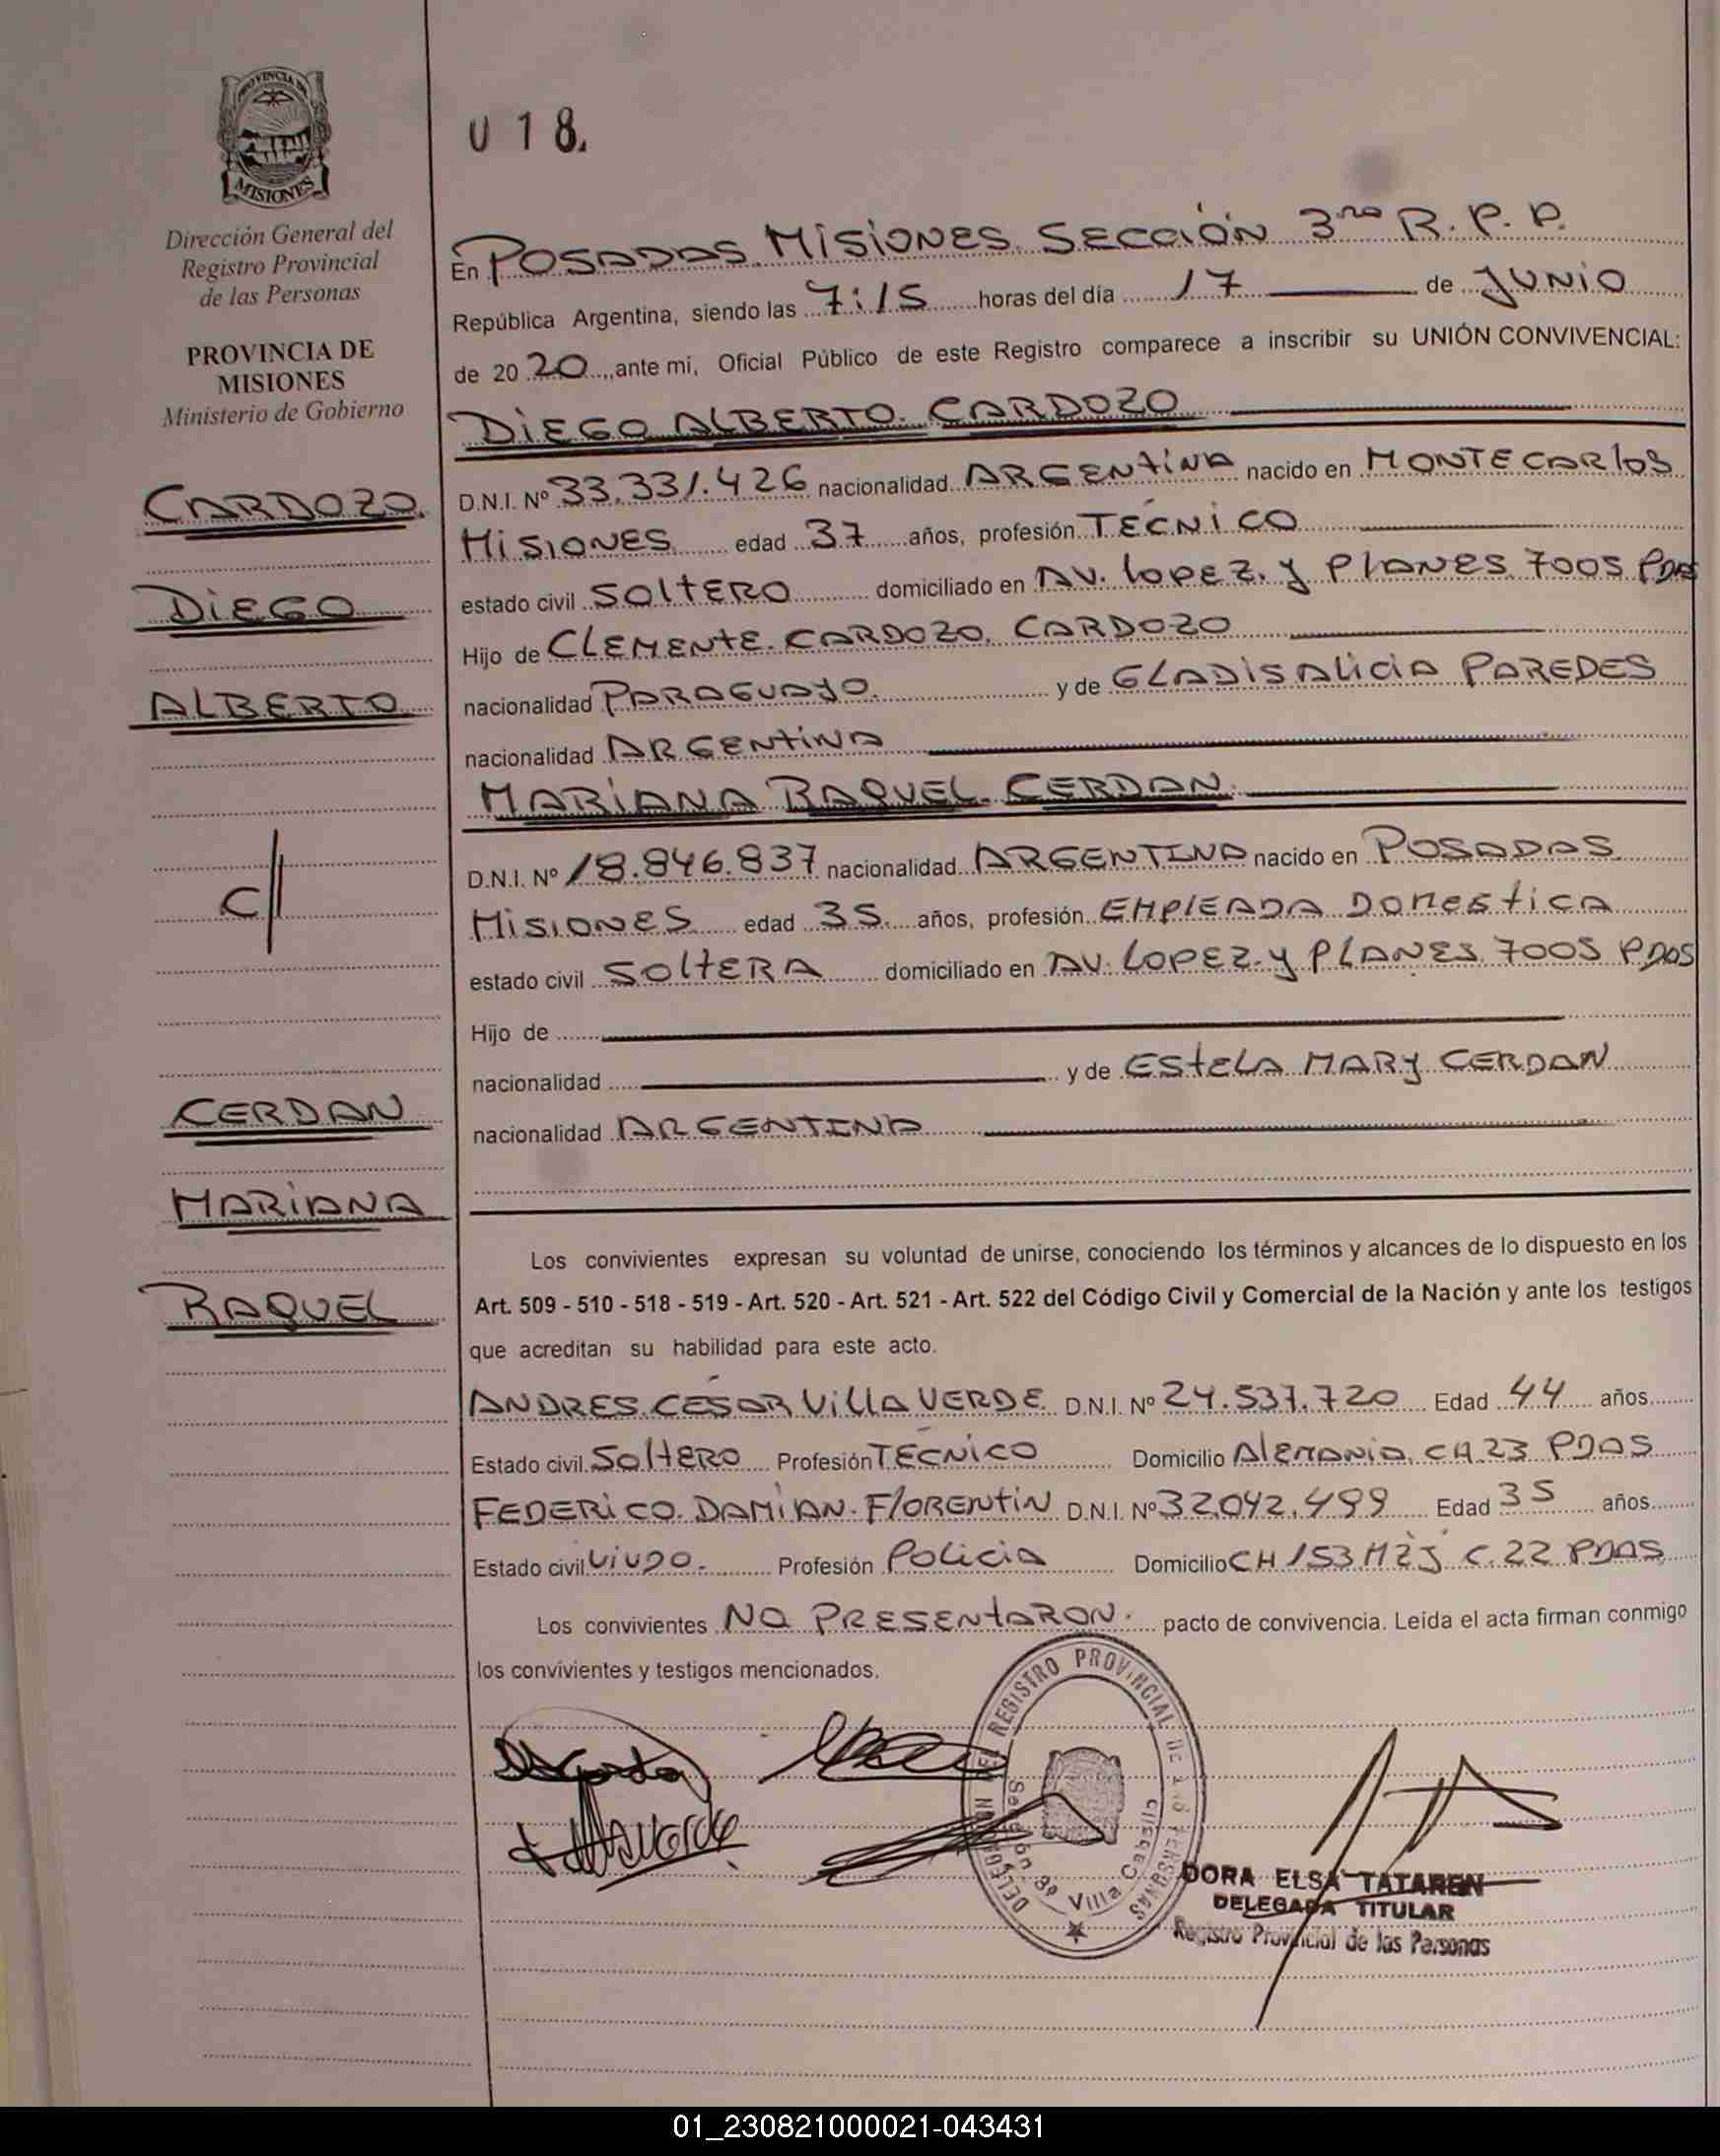 PROVINCIA DE
MISIONES
Dirección General del
Registro Provincial
de las Personas
PROVINCIA DE
MISIONES
Ministerio de Gobierno
CARDOZO
DIEGO
ALBERTO
C//
CERDAN
MARIANA
RAQUEL
U 18.
En POSADAS MISIONES SECCIÓN 3ra R.P.P.
República Argentina, siendo las 7:15 horas del día 17 de JUNIO
de 2020, ante mi, Oficial Público de este Registro comparece a inscribir su UNIÓN CONVIVENCIAL:
DIEGO ALBERTO CARDOZO
D.N.I. Nº 33.331.426 nacionalidad ARGENTINA nacido en MONTECARLOS
MISIONES edad 37 años, profesión TÉCNICO
estado civil SOLTERO domiciliado en AV. LOPEZ y PLANES 7005 PDAS
Hijo de CLEMENTE CARDOZO CARDOZO
nacionalidad PARAGUAYO y de GLADIS ALICIA PAREDES
nacionalidad ARGENTINA
MARIANA RAQUEL CERDAN
D.N.I. Nº 18.846.837 nacionalidad ARGENTINA nacido en POSADAS
MISIONES edad 35 años, profesión EMPLEADA DOMESTICA
estado civil SOLTERA domiciliado en AV. LOPEZ y PLANES 7005 PDAS
Hijo de
nacionalidad y de ESTELA MARY CERDAN
nacionalidad ARGENTINA
Los convivientes expresan su voluntad de unirse, conociendo los términos y alcances de lo dispuesto en los
Art. 509 - 510 - 518 - 519 - Art. 520 - Art. 521 - Art. 522 del Código Civil y Comercial de la Nación y ante los testigos
que acreditan su habilidad para este acto.
ANDRES CÉSAR VILLAVERDE D.N.I. Nº 24.537.720 Edad 44 años
Estado civil SOLTERO Profesión TÉCNICO Domicilio ALEMANIA CH.23 PDAS
FEDERICO DAMIAN FLORENTÍN D.N.I. Nº 32.042.499 Edad 35 años
Estado civil VIUDO Profesión POLICIA Domicilio CH 153 C.22 PDAS
Los convivientes NO PRESENTARON pacto de convivencia. Leída el acta firman conmigo
los convivientes y testigos mencionados.
DELEGACION DEL REGISTRO PROVINCIAL DE LAS PERSONAS
Sección 3ª Villa Cabello
DORA ELSA TATAREN
DELEGADA TITULAR
Registro Provincial de las Personas
01_230821000021-043431